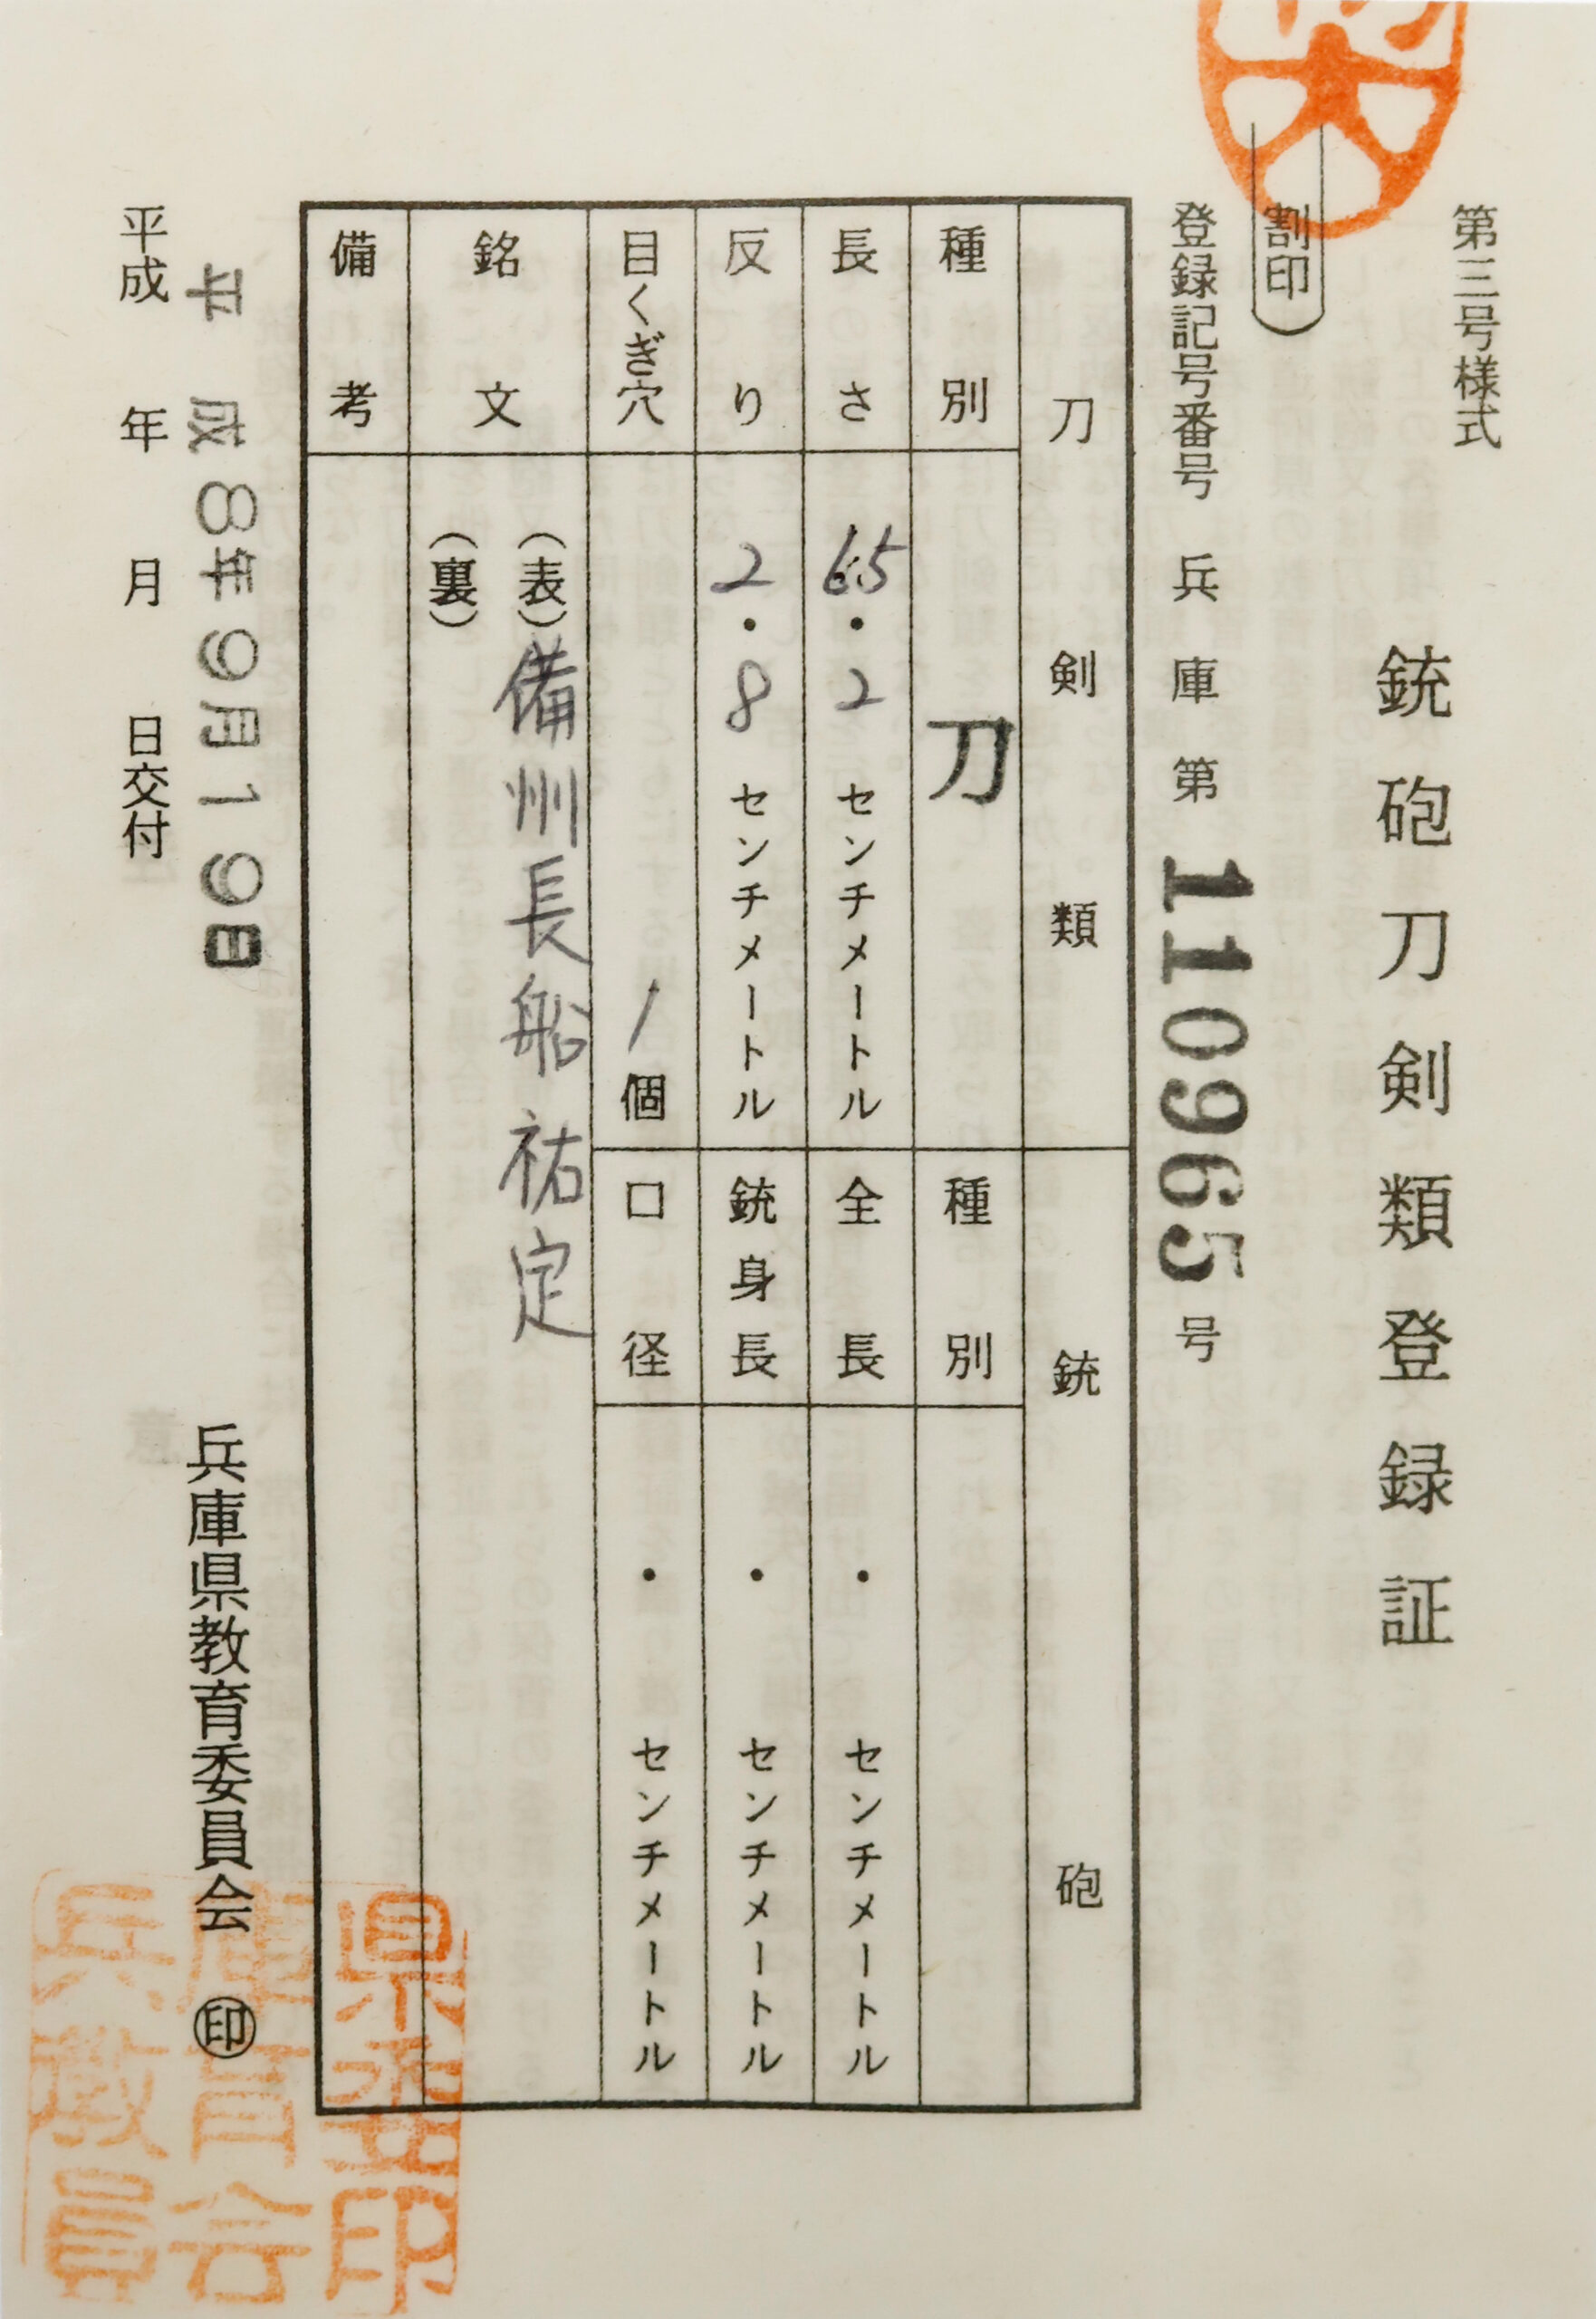 第三号様式
銃砲刀剣類登録証
(割印)
登録記号番号 兵庫 第 110965 号
刀剣類 銃砲
種別 刀 種別
長さ 65・2 センチメートル 全長 ・ センチメートル
反り 2・8 センチメートル 銃身長 ・ センチメートル
目くぎ穴 1個 口径 ・ センチメートル
銘文 (表) 備州長船祐定
(裏)
備考
平成8年9月19日
平成 年 月 日交付
兵庫県教育委員会 ㊞
県委印
庫育会
兵教員